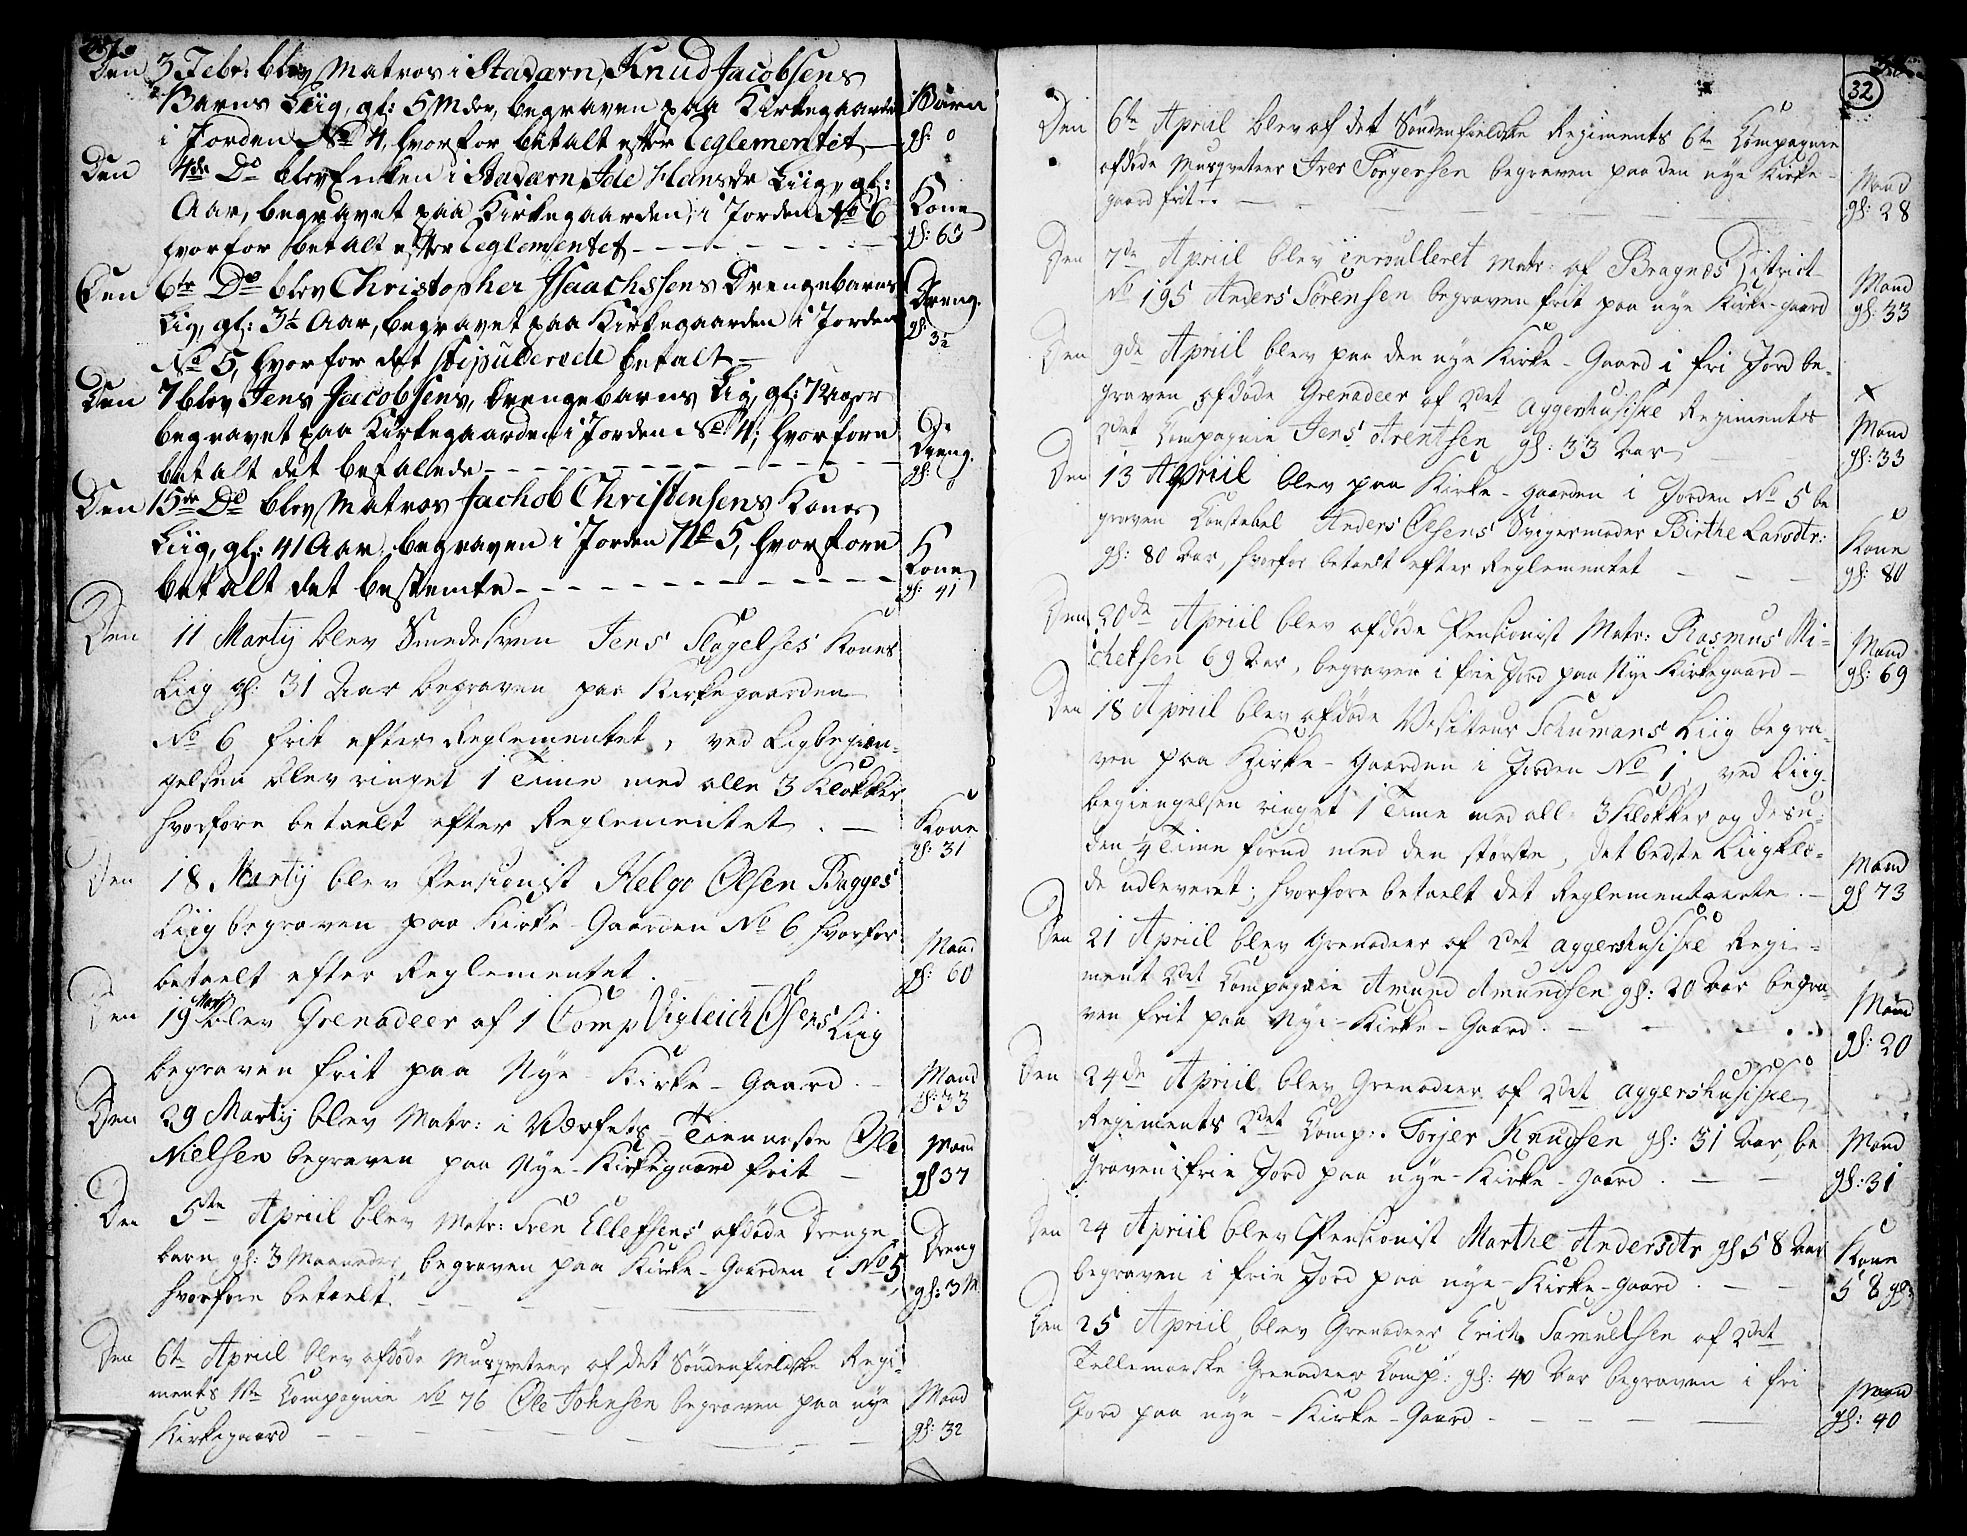 Den 3 Febr: blev Matros i Staværn, Knud Jacobsens
Barns Liig, gl: 5 Mdr, begraven paa Kirkegaarden
i Jorden No 4, hvorfor betalt efter Reglementet —
Barn
gl: 0
Den 4de Do blev Enken i Staværn, Ide Hansdr Liig, gl:
Aar, begravet paa Kirkegaarden i Jorden No 6
hvorfor betalt efter Reglementet — — —
Kone
gl: 63
Den 6te Do blev Christopher Isaachsens Drengebarns
Lig, gl: 3½ Aar, begravet paa Kirkegaarden i Jorden
No 5, hvorfor det stipulerede betalt —
Dreng.
gl: 3½
Den 7 blev Jens Jacobsens, Drengebarns Lig, gl: 7 Uger
begravet paa Kirkegaarden i Jorden No 4; hvorfore
betalt det befalede — — —
Dreng.
gl: 0
Den 15de Do blev Matros Jachob Christensens Kones
Liig, gl: 41 Aar, begraven i Jorden No 5, hvorfore
betalt det bestemte — — —
Kone
gl: 41
Den 11 Martij blev Smedesven Jens Slagelses Kones
Liig gl: 31 Aar begraven paa Kirkegaarden
No 6 frit efter Reglementet, ved Ligbegien-
gelsen blev ringet 1 Time med alle 3 Klokker
hvorfore betaelt efter Reglementet. —
Kone
gl: 31
Den 18 Martij blev Pensionist Helge Olsen Bagges
Liig begraven paa Kirke-Gaarden No 6 hvorfor
betaelt efter Reglementet.
Mand
gl: 60
Den 19 Marti blev Grenadeer af 1 Comp Vigleich Olsens Liig
begraven frit paa Nye-Kirke-Gaard. —
Mand
gl: 33
Den 29 Martij blev Matr: i Værfets Tienneste Ole
Nielsen begraven paa Nye-Kirkegaard frit —
Mand
gl 37
Den 5te Apriil blev Matr: Sven Ellefsens afdøde Drenge-
barn gl: 3 Maaneder, begraven paa Kirke-Gaarden i No 5
hvorfore betaelt. — — —
Dreng
gl: 3 M
Den 6te Apriil blev afdøde Musqveteer af det Søndenfieldske Regi-
ments Compagnie No 76 Ole Johnsen begraven paa nye
Kirkegaard — — —
Mand
gl: 32
32
Den 6te Apriil blev af det Søndenfieldske Regiments 6te Compagnie
afdøde Musqveteer Iver Torgersen begraven paa den nye Kirke-
gaard frit — — —
Mand
gl: 28
Den 7de Apriil blev inroulleret Matr: af Bragnæs District
No 195 Anders Sörensen begraven frit paa nye Kirke-gaard
Mand
gl: 33
Den 9de Apriil blev paa den nye Kirke-Gaard i fri Jord be-
graven afdøde Grenadeer af 2det Aggershusiske Regiments
2det Compagnie Jens Arentsen gl: 33 Aar —
x
Mand
gl: 33
Den 13 Apriil blev paa Kirke-gaarden i Jorden No 5 be
graven Constabel Anders Olsens Svigermoder Birthe Larsdtr:
gl: 80 Aar, hvorfor betaelt efter Reglementet — — —
Kone
gl: 80
Den 20de Apriil blev afdøde Pensionist Matr: Rasmus Mi-
chelsen 69 Aar, begraven i frie Jord paa Nye Kirkegaard —
Mand
gl: 69
Den 18 Apriil blev afdøde Visiteur Schumans Liig begra-
ven paa Kirke-Gaarden i Jorden No 1, ved Liig-
begiengelsen ringet 1 Time med alle 3 Klokker og desu-
den ¼ Time forud med den største, det bedste Liigklæ-
de udleveret; hvorfore betaelt det Reglementerte. —
Mand
gl 73
Den 21 Apriil blev Grenadeer af 2det Aggershusiske Regi-
ment 2det Compagnie Amund Amundsen gl: 20 Aar begra-
ven frit paa Nye-Kirke-Gaard. —
Mand
gl: 20
Den 24de Apriil blev Grenadeer af 2det Aggershusiske
Regiments 2det Comp: Torjer Knudsen gl: 31 Aar, be
graven i frie Jord paa nye-Kirke-gaard. — —
Mand
gl: 31
Den 24 Apriil blev Pensionist Marthe Andersdtr gl 58 Aar
begraven i frie Jord paa nye-Kirke-gaard. — —
Kone
58 gl:
Den 25 Apriil blev Grenadeer Erich Samuelsen af 2det
Tellemarske Grenadeer Comp: gl: 40 Aar begraven i fri
Jord paa nye-Kirke-Gaard. — — —
Mand
gl: 40